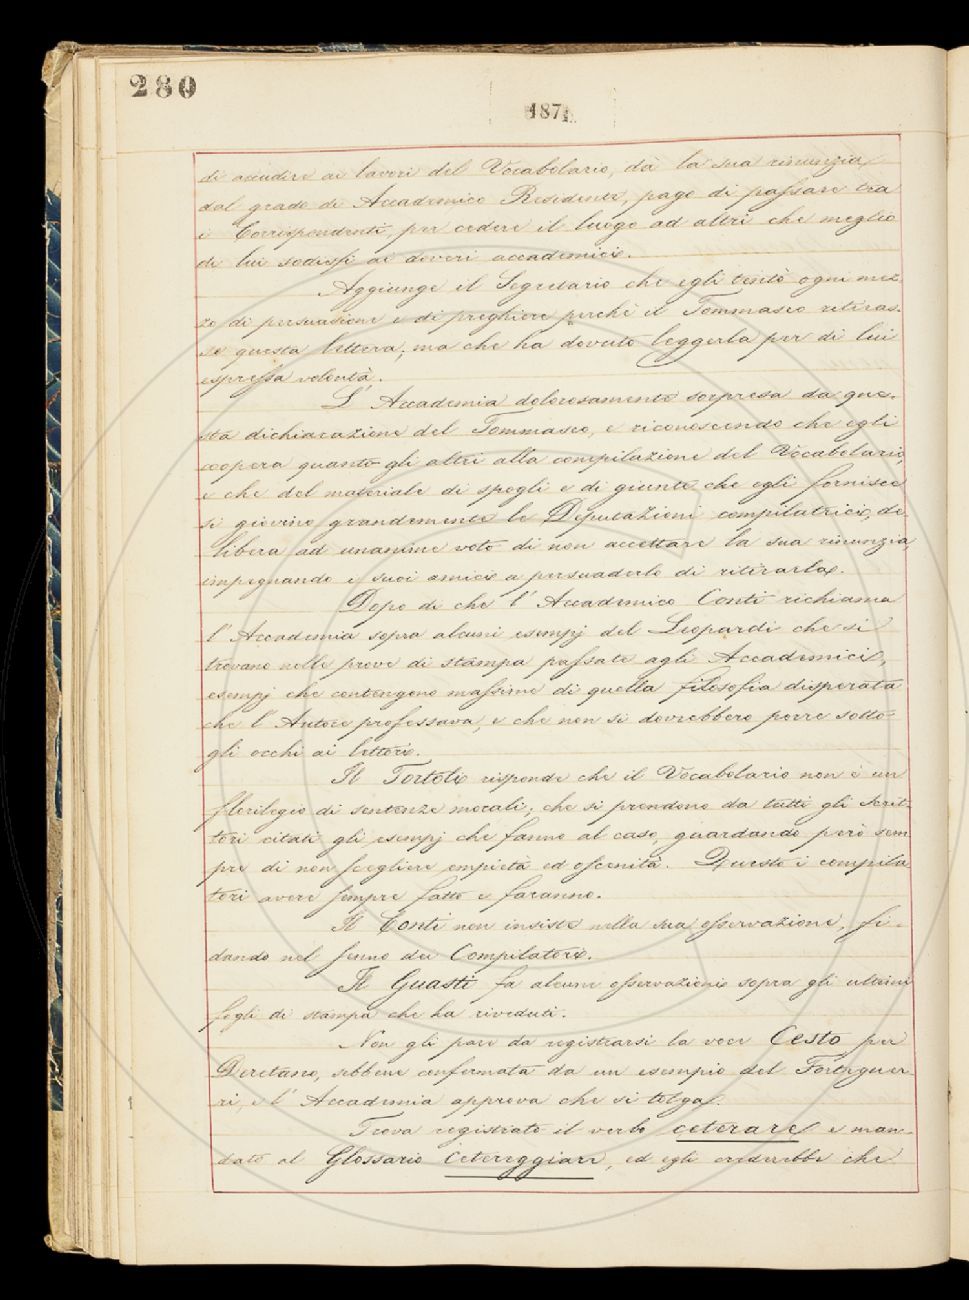 280
1871
di accudire ai lavori del Vocabolario, dà la sua rinunzia
dal grado di Accademico Residente, pago di passare tra
i Corrispondenti, per cedere il luogo ad altri che meglio
di lui sodisfi ai doveri accademici.
Aggiunge il Segretario che egli tentò ogni mez-
zo di persuasione e di preghiere perchè il Tommaseo ritiras-
se questa lettera; ma che ha dovuto leggerla per di lui
espressa volontà.
L'Accademia dolorosamente sorpresa da que-
sta dichiarazione del Tommaseo, e riconoscendo che egli
coopera quanto gli altri alla compilazione del Vocabolario,
e che del materiale di spogli e di giunte che egli fornisce
si giovino grandemente le Deputazioni compilatrici, de-
libera ad unanime voto di non accettare la sua rinunzia,
impegnando i suoi amici a persuaderlo di ritirarla.
Dopo di che l'Accademico Conti richiama
l'Accademia sopra alcuni esempj del Leopardi che si
trovano nelle prove di stampa passate agli Accademici,
esempj che contengono massime di quella filosofia disperata
che l'Autore professava, e che non si dovrebbero porre sotto
gli occhi ai lettori.
Il Tortoli risponde che il Vocabolario non è un
florilegio di sentenze morali; che si prendono da tutti gli scrit-
tori citati gli esempj che fanno al caso, guardando però sem
pre di non scegliere empietà ed oscenità. Questo i compila
tori avere sempre fatto e faranno.
Il Conti non insiste nella sua osservazione, fi-
dando nel senno dei Compilatori.
Il Guasti fa alcune osservazioni sopra gli ultimi
fogli di stampa che ha riveduti.
Non gli pare da registrarsi la voce Cesto per
Deretano, sebbene confermata da un esempio del Fortiguer-
ri, e l'Accademia approva che si tolga.
Trova registrato il verbo ceterare e man-
dato al Glossario Cetereggiare, ed egli crederebbe che